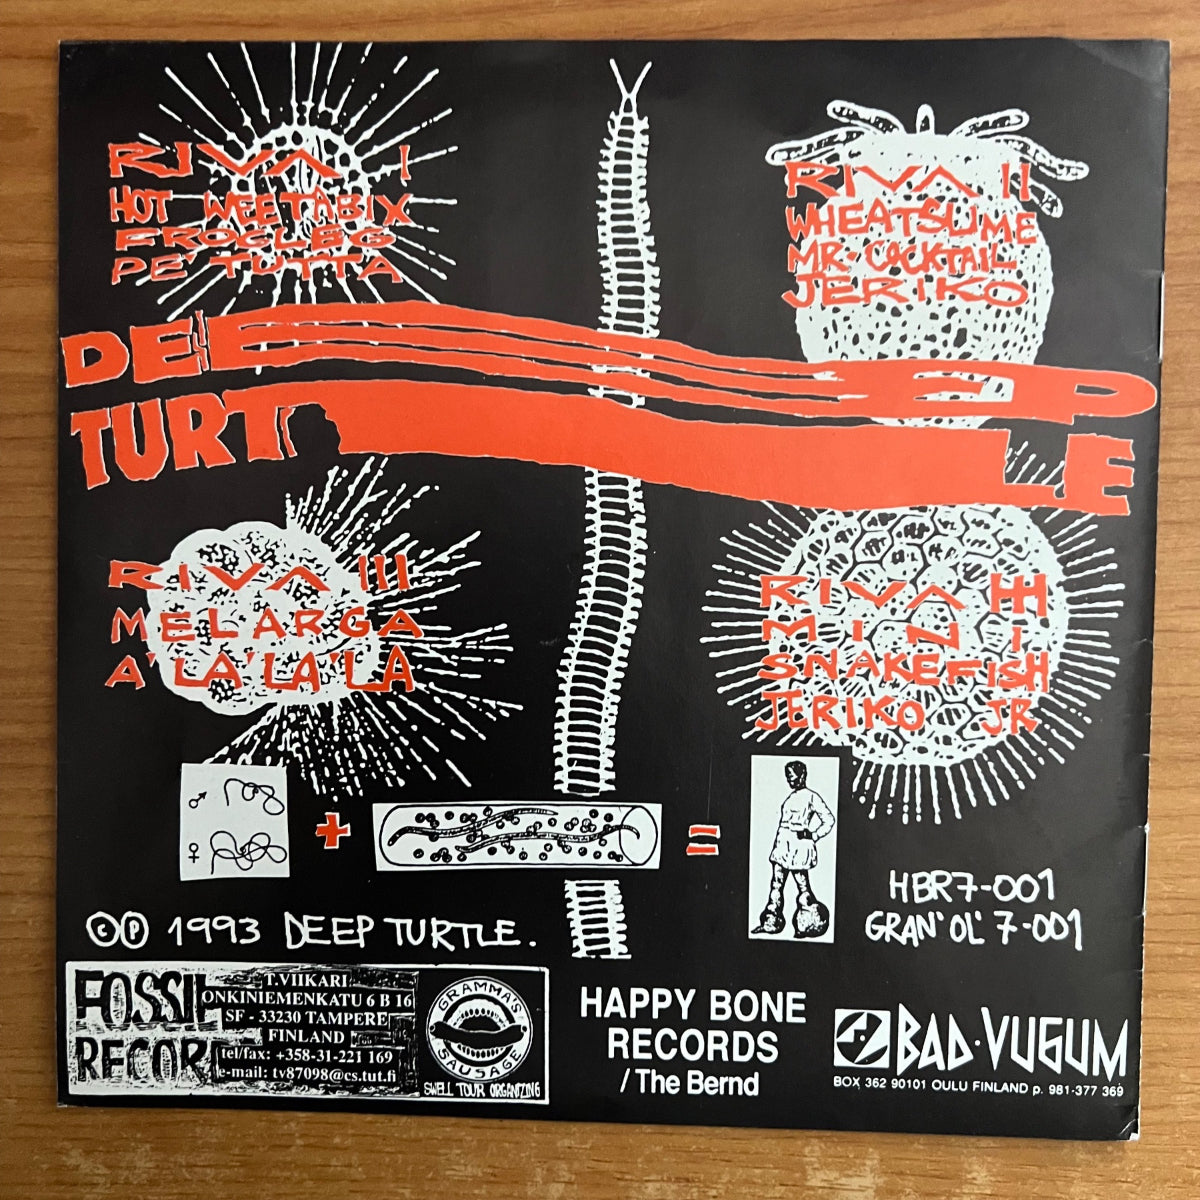 RIVA I
HOT WEETABIX
FROGLEG
PE' TUTTA
RIVA II
WHEATSUME
MR. COCKTAIL
JERIKO
DEEP
TURTLE
RIVA III
MELARGA
A'LA'LA'LA
RIVA IIII
MINI
SNAKEFISH
JERIKO JR
♂
♀
+
=
HBR7-001
GRAN' OL' 7-001
© ℗ 1993 DEEP TURTLE.
FOSSIL
RECORDS
T.VIIKARI
ONKINIEMENKATU 6 B 16
SF - 33230 TAMPERE
FINLAND
tel/fax: +358-31-221 169
e-mail: tv87098@cs.tut.fi
GRAMMA'S
SAUSAGE
SWELL TOUR ORGANIZING
HAPPY BONE
RECORDS
/The Bernd
BAD·VUGUM
BOX 362 90101 OULU FINLAND p. 981-377 369